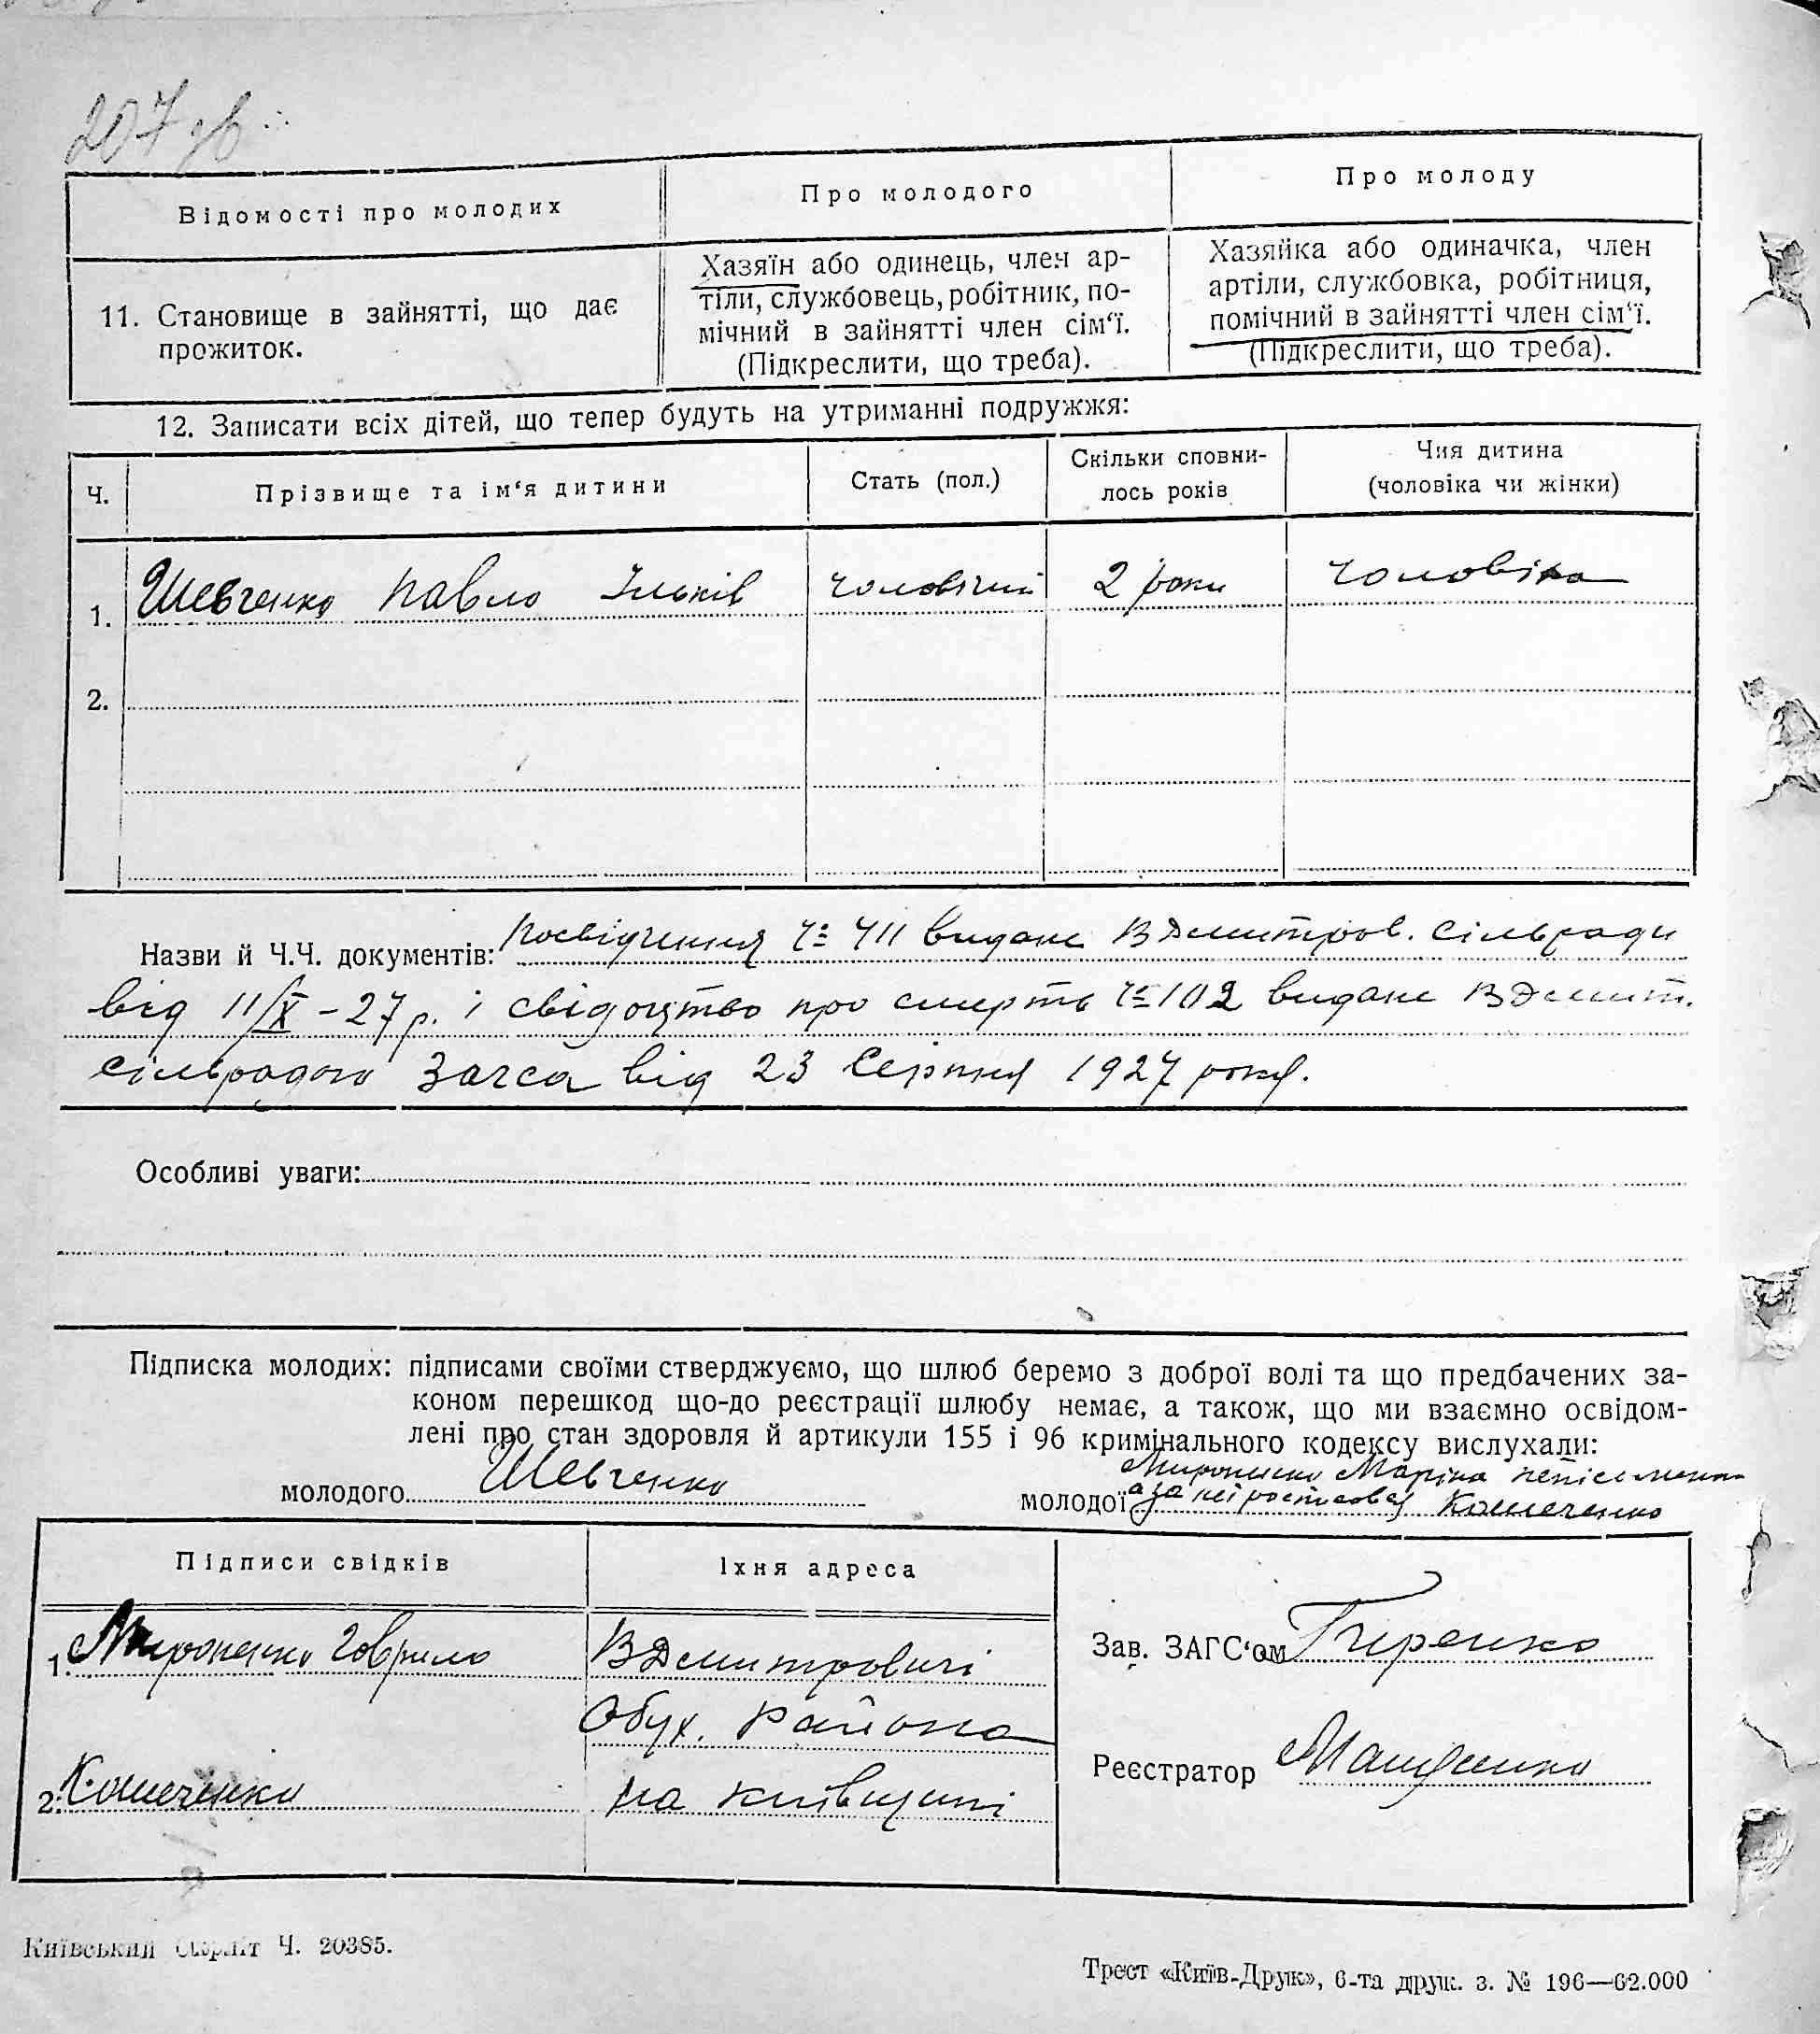 207 зв
Відомості про молодих
Про молодого
Про молоду
11. Становище в зайнятті, що дає
прожиток.
Хазяїн або одинець, член ар-
тіли, службовець, робітник, по-
мічний в зайнятті член сім‘ї.
(Підкреслити, що треба).
Хазяйка або одиначка, член
артіли, службовка, робітниця,
помічний в зайнятті член сім‘ї.
(Підкреслити, що треба).
12. Записати всіх дітей, що тепер будуть на утриманні подружжя:
Ч.
Прізвище та ім‘я дитини
Стать (пол.)
Скільки сповни-
лось років
Чия дитина
(чоловіка чи жінки)
1. Шевченко Павло Ільків чоловічий 2 роки чоловіка
2.
Назви й Ч.Ч. документів: посвідчення Ч 411 видане ВДмитров. сільради
від 11/X – 27 р. і свідоцтво про смерть Ч 102 видане ВДмит.
сільрадою Загса від 23 Серпня 1927 року.
Особливі уваги:
Підписка молодих: підписами своїми стверджуємо, що шлюб беремо з доброї волі та що предбачених за-
коном перешкод що-до реєстрації шлюбу немає, а також, що ми взаємно освідом-
лені про стан здоровля й артикули 155 і 96 кримінального кодексу вислухали:
молодого Шевченко
Мироненко Маріна неписьменна
молодої а за неї росписався Кошеченко
Підписи свідків
Їхня адреса
1. Мироненко Говрило
ВДмитровичі
Обух. району
2. Кошеченко
на Київщині
Зав. ЗАГС‘ом
Реєстратор
Київський Окрліт Ч. 20385.
Трест «Київ-Друк», 6-та друк. з. № 196—62.000